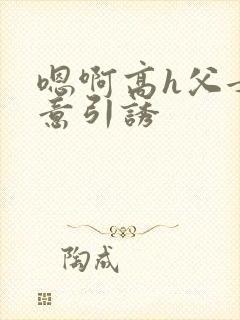 嗯啊高h父
意引誘
陶成